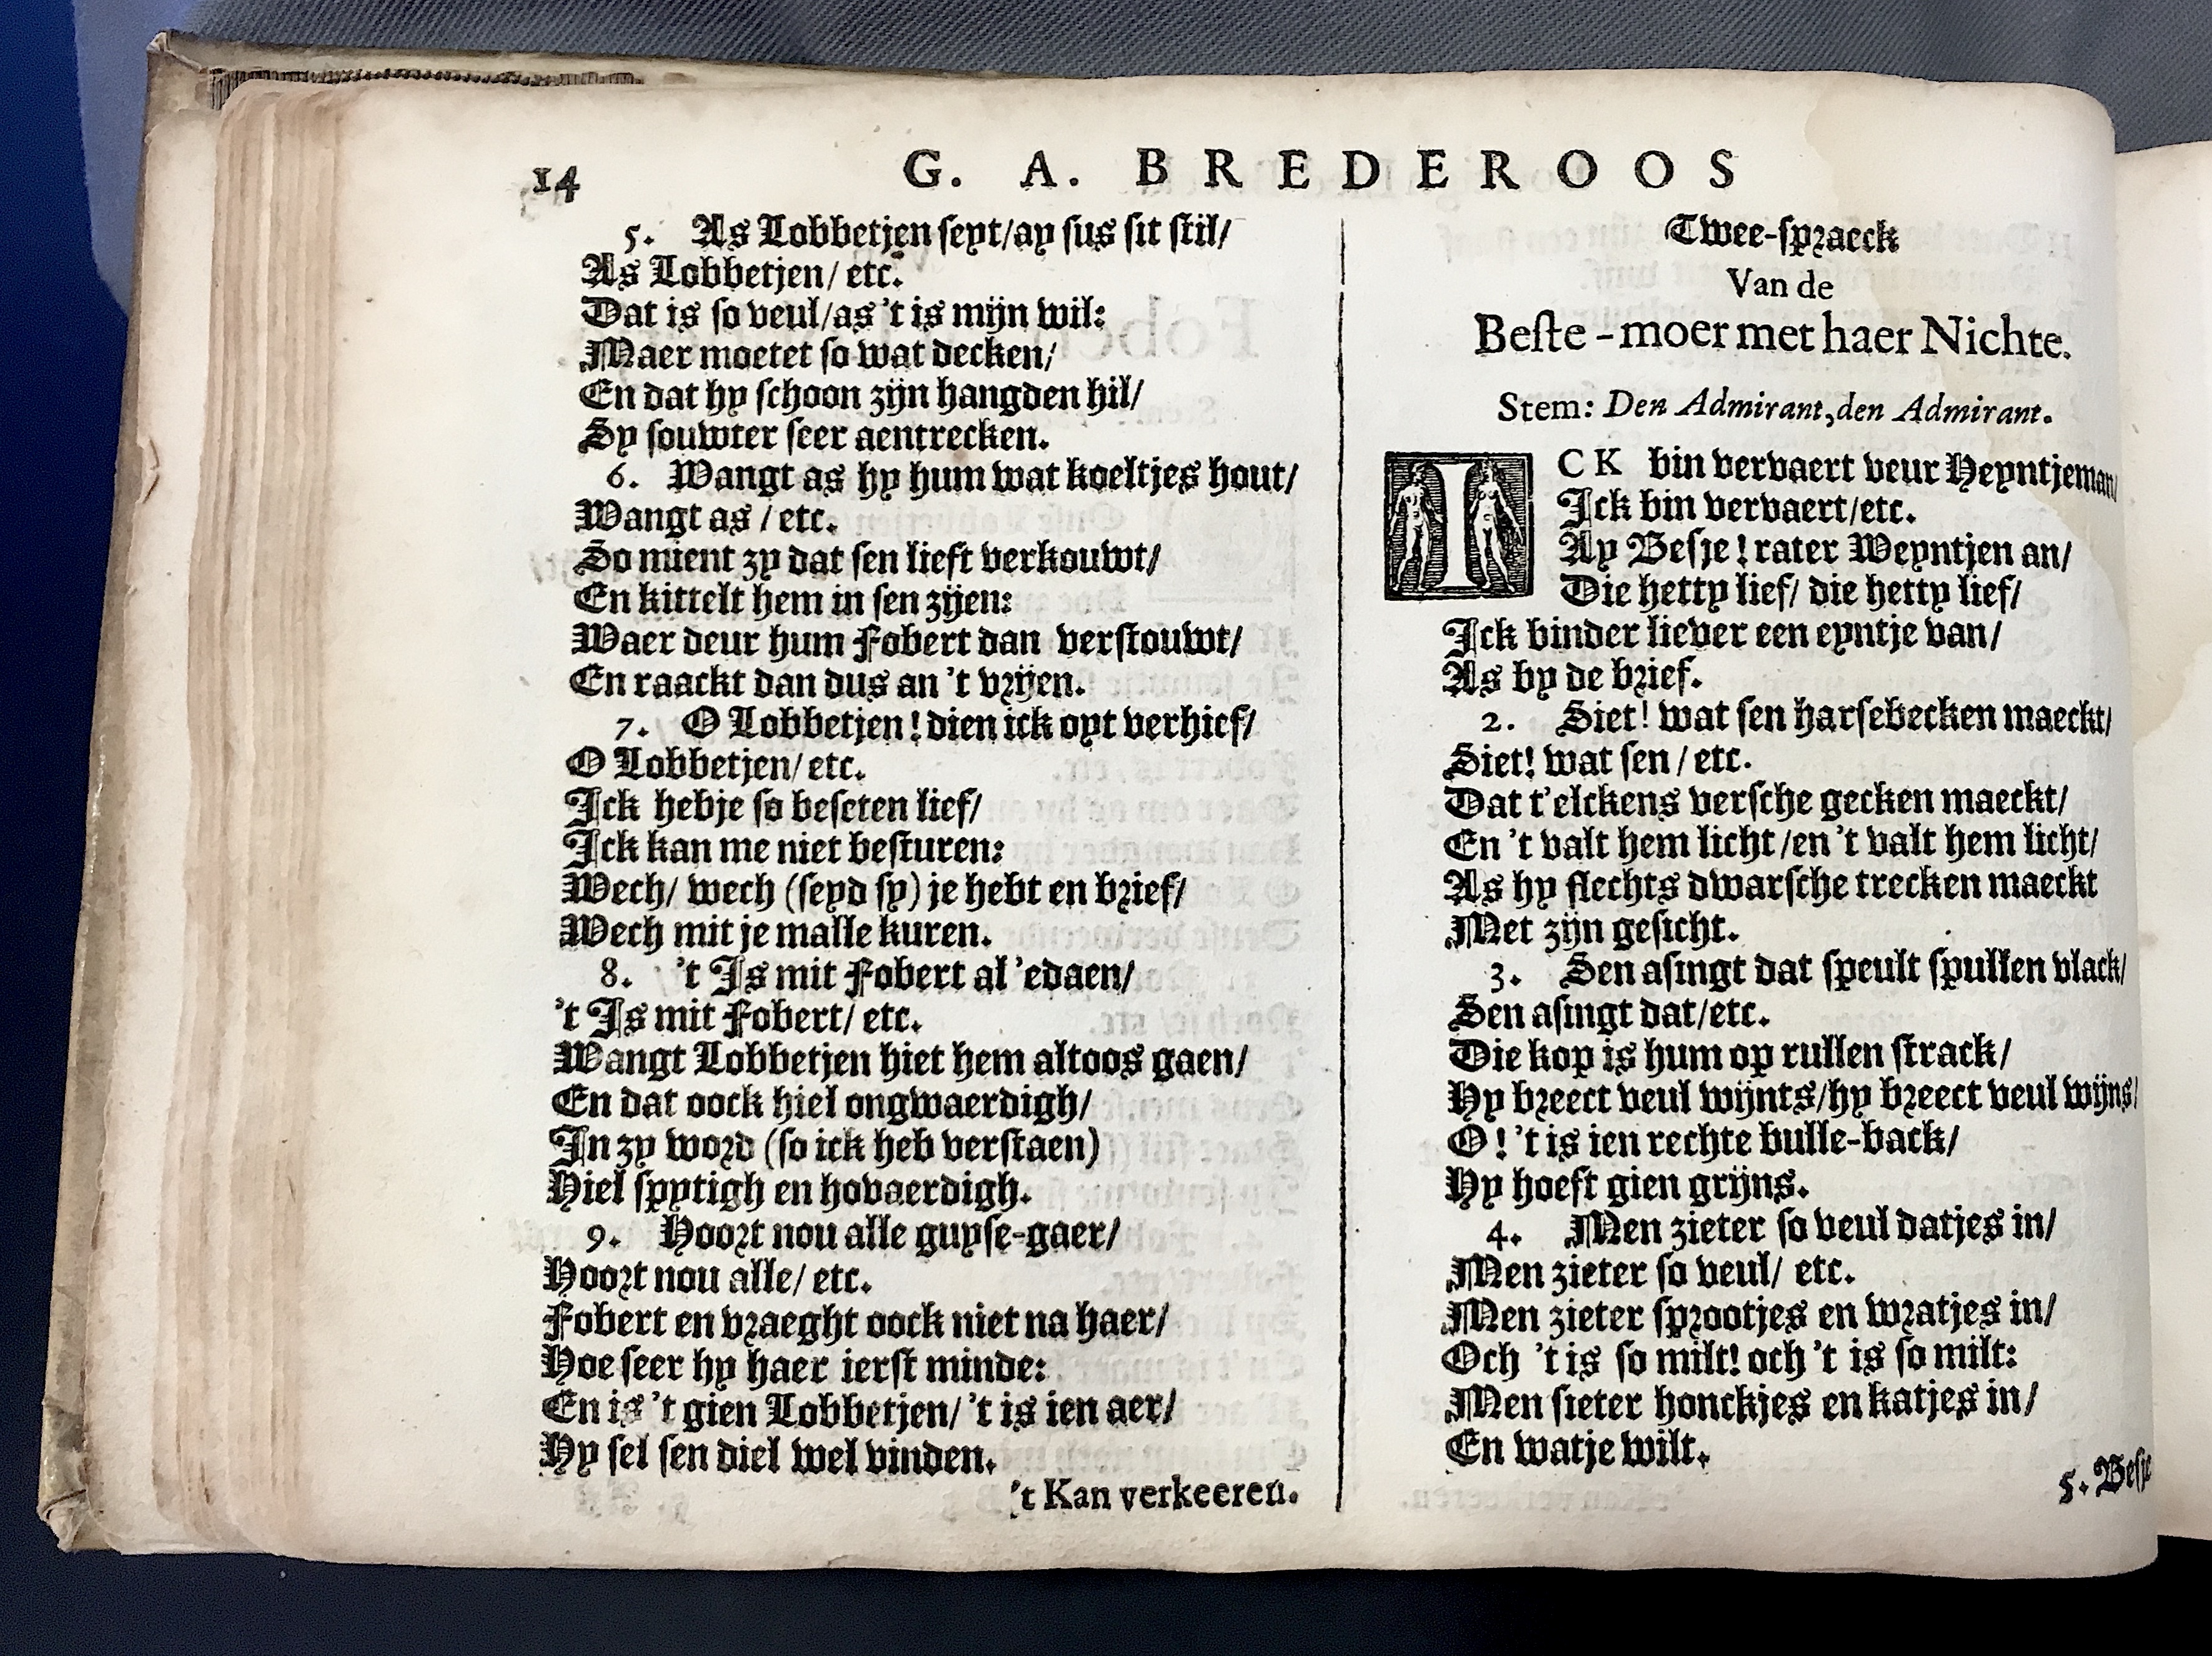 14
G. A. BREDEROOS
5. As Lobbetjen seyt/ay sus sit stil/
As Lobbetjen/ etc.
Dat is so veul/as 't is mijn wil:
Maer moetet so wat decken/
En dat hy schoon zijn hangden hil/
Sy souwter seer aentrecken.
6. Wangt as hy hum wat koeltjes hout/
Wangt as / etc.
So mient zy dat sen lieft verkouwt/
En kittelt hem in sen zijen:
Waer deur hum Fobert dan verstouwt/
En raackt dan dus an 't vrijen.
7. O Lobbetjen! dien ick oyt verhief/
O Lobbetjen/ etc.
Ick hebje so beseten lief/
Ick kan me niet besturen:
Wech/ wech (seyd sy) je hebt en brief/
Wech mit je malle kuren.
8. 't Is mit Fobert al 'edaen/
't Is mit Fobert/ etc.
Wangt Lobbetjen hiet hem altoos gaen/
En dat oock hiel ongwaerdigh/
In zy word (so ick heb verstaen)
Hiel spytigh en hovaerdigh.
9. Hoort nou alle guyse-gaer/
Hoort nou alle/ etc.
Fobert en vraeght oock niet na haer/
Hoe seer hy haer ierst minde:
En is 't gien Lobbetjen/ 't is ien aer/
Hy sel sen diel wel vinden.
't Kan verkeeren.
Twee-spraeck
Van de
Beste-moer met haer Nichte.
Stem: Den Admirant, den Admirant.
ICK bin vervaert veur Heyntjeman/
Ick bin vervaert/etc.
Ay Besje! rater Weyntjen an/
Die hetty lief/ die hetty lief/
Ick binder liever een eyntje van/
As by de brief.
2. Siet! wat sen harsebecken maeckt/
Siet! wat sen / etc.
Dat t'elckens versche gecken maeckt/
En 't valt hem licht /en 't valt hem licht/
As hy slechts dwarsche trecken maeckt
Met zijn gesicht.
3. Sen asingt dat speult spullen vlack/
Sen asingt dat/etc.
Die kop is hum op rullen strack/
Hy breect veul wijnts/hy breect veul wijns/
O! 't is ien rechte bulle-back/
Hy hoeft gien grijns.
4. Men zieter so veul datjes in/
Men zieter so veul/ etc.
Men zieter sprootjes en wratjes in/
Och 't is so milt! och 't is so milt:
Men sieter honckjes en katjes in/
En watje wilt.
5. Besje